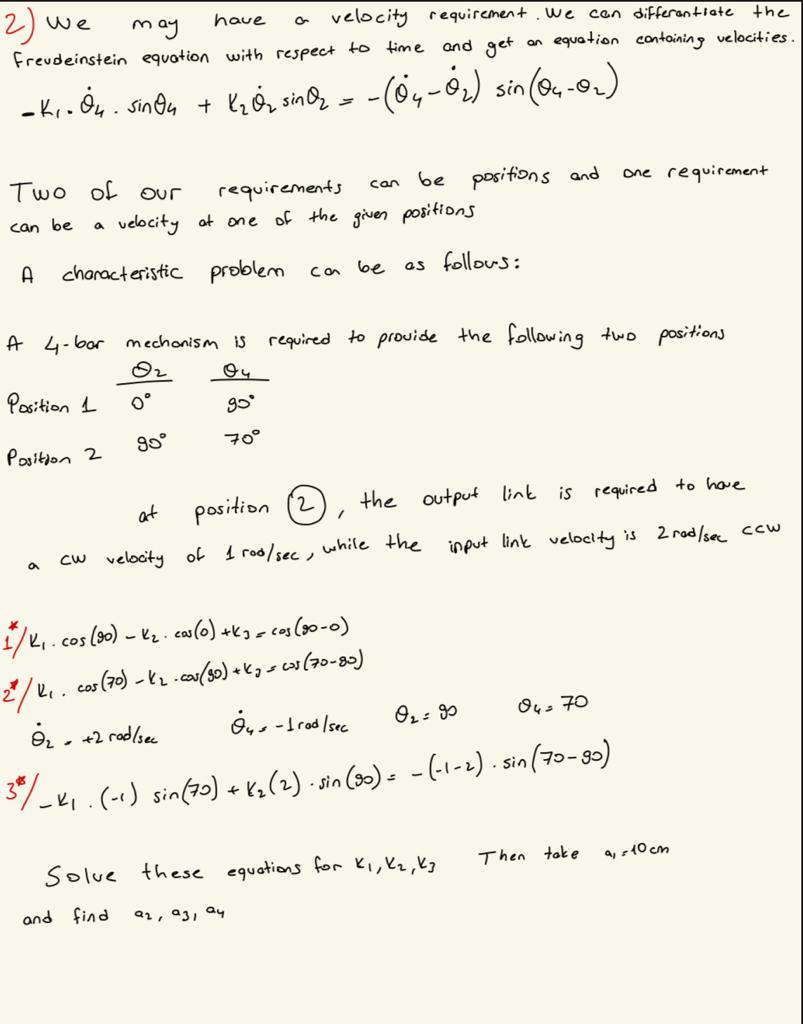 2) We may have a velocity requirement. We can differantiate the
Freudeinstein equation with respect to time and get an equation containing velocities.
-K₁.θ̇₄. sinθ₄ + K₂θ̇₂ sinθ₂ = -(θ̇₄-θ̇₂) sin(θ₄-θ₂)
Two of our requirements can be positions and one requirement
can be a velocity at one of the given positions
A characteristic problem can be as follows:
A 4-bar mechanism is required to provide the following two positions
θ₂ θ₄
Position 1 0° 90°
Position 2 90° 70°
at position 2, the output link is required to have
a cw velocity of 1 rad/sec, while the input link velocity is 2 rad/sec ccw
1*/ K₁. cos(90) - K₂. cos(0) + K₃ = cos(90-0)
2*/ K₁. cos(70) - K₂.cos(90) + K₃ = cos(70-90)
θ̇₂ = +2 rad/sec θ̇₄ = -1 rad/sec θ₂ = 90 θ₄ = 70
3*/ -K₁. (-1) sin(70) + K₂(2). sin(90) = -(-1-2). sin(70-90)
Solve these equations for K₁, K₂, K₃ Then take a₁=10cm
and find a₂, a₃, a₄